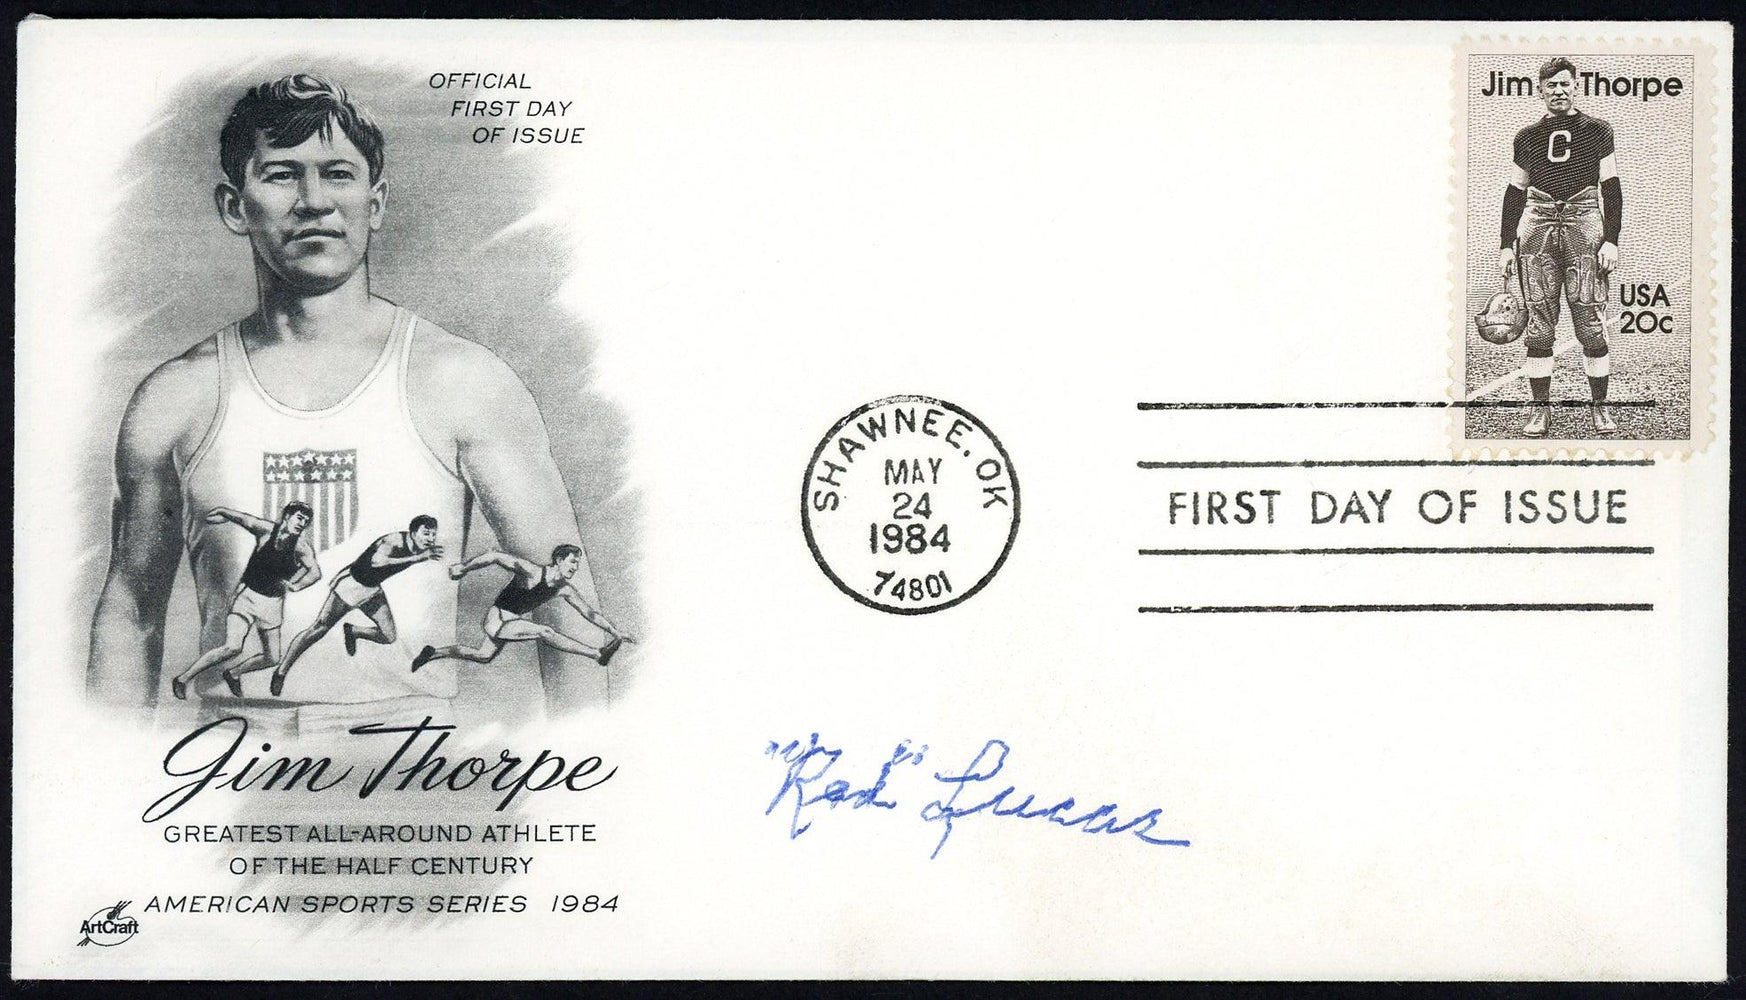 OFFICIAL
FIRST DAY
OF ISSUE
Jim Thorpe
C
USA
20c
SHAWNEE, OK
MAY
24
1984
74801
FIRST DAY OF ISSUE
Jim Thorpe
GREATEST ALL-AROUND ATHLETE
OF THE HALF CENTURY
AMERICAN SPORTS SERIES 1984
ArtCraft
"Red" Lucas